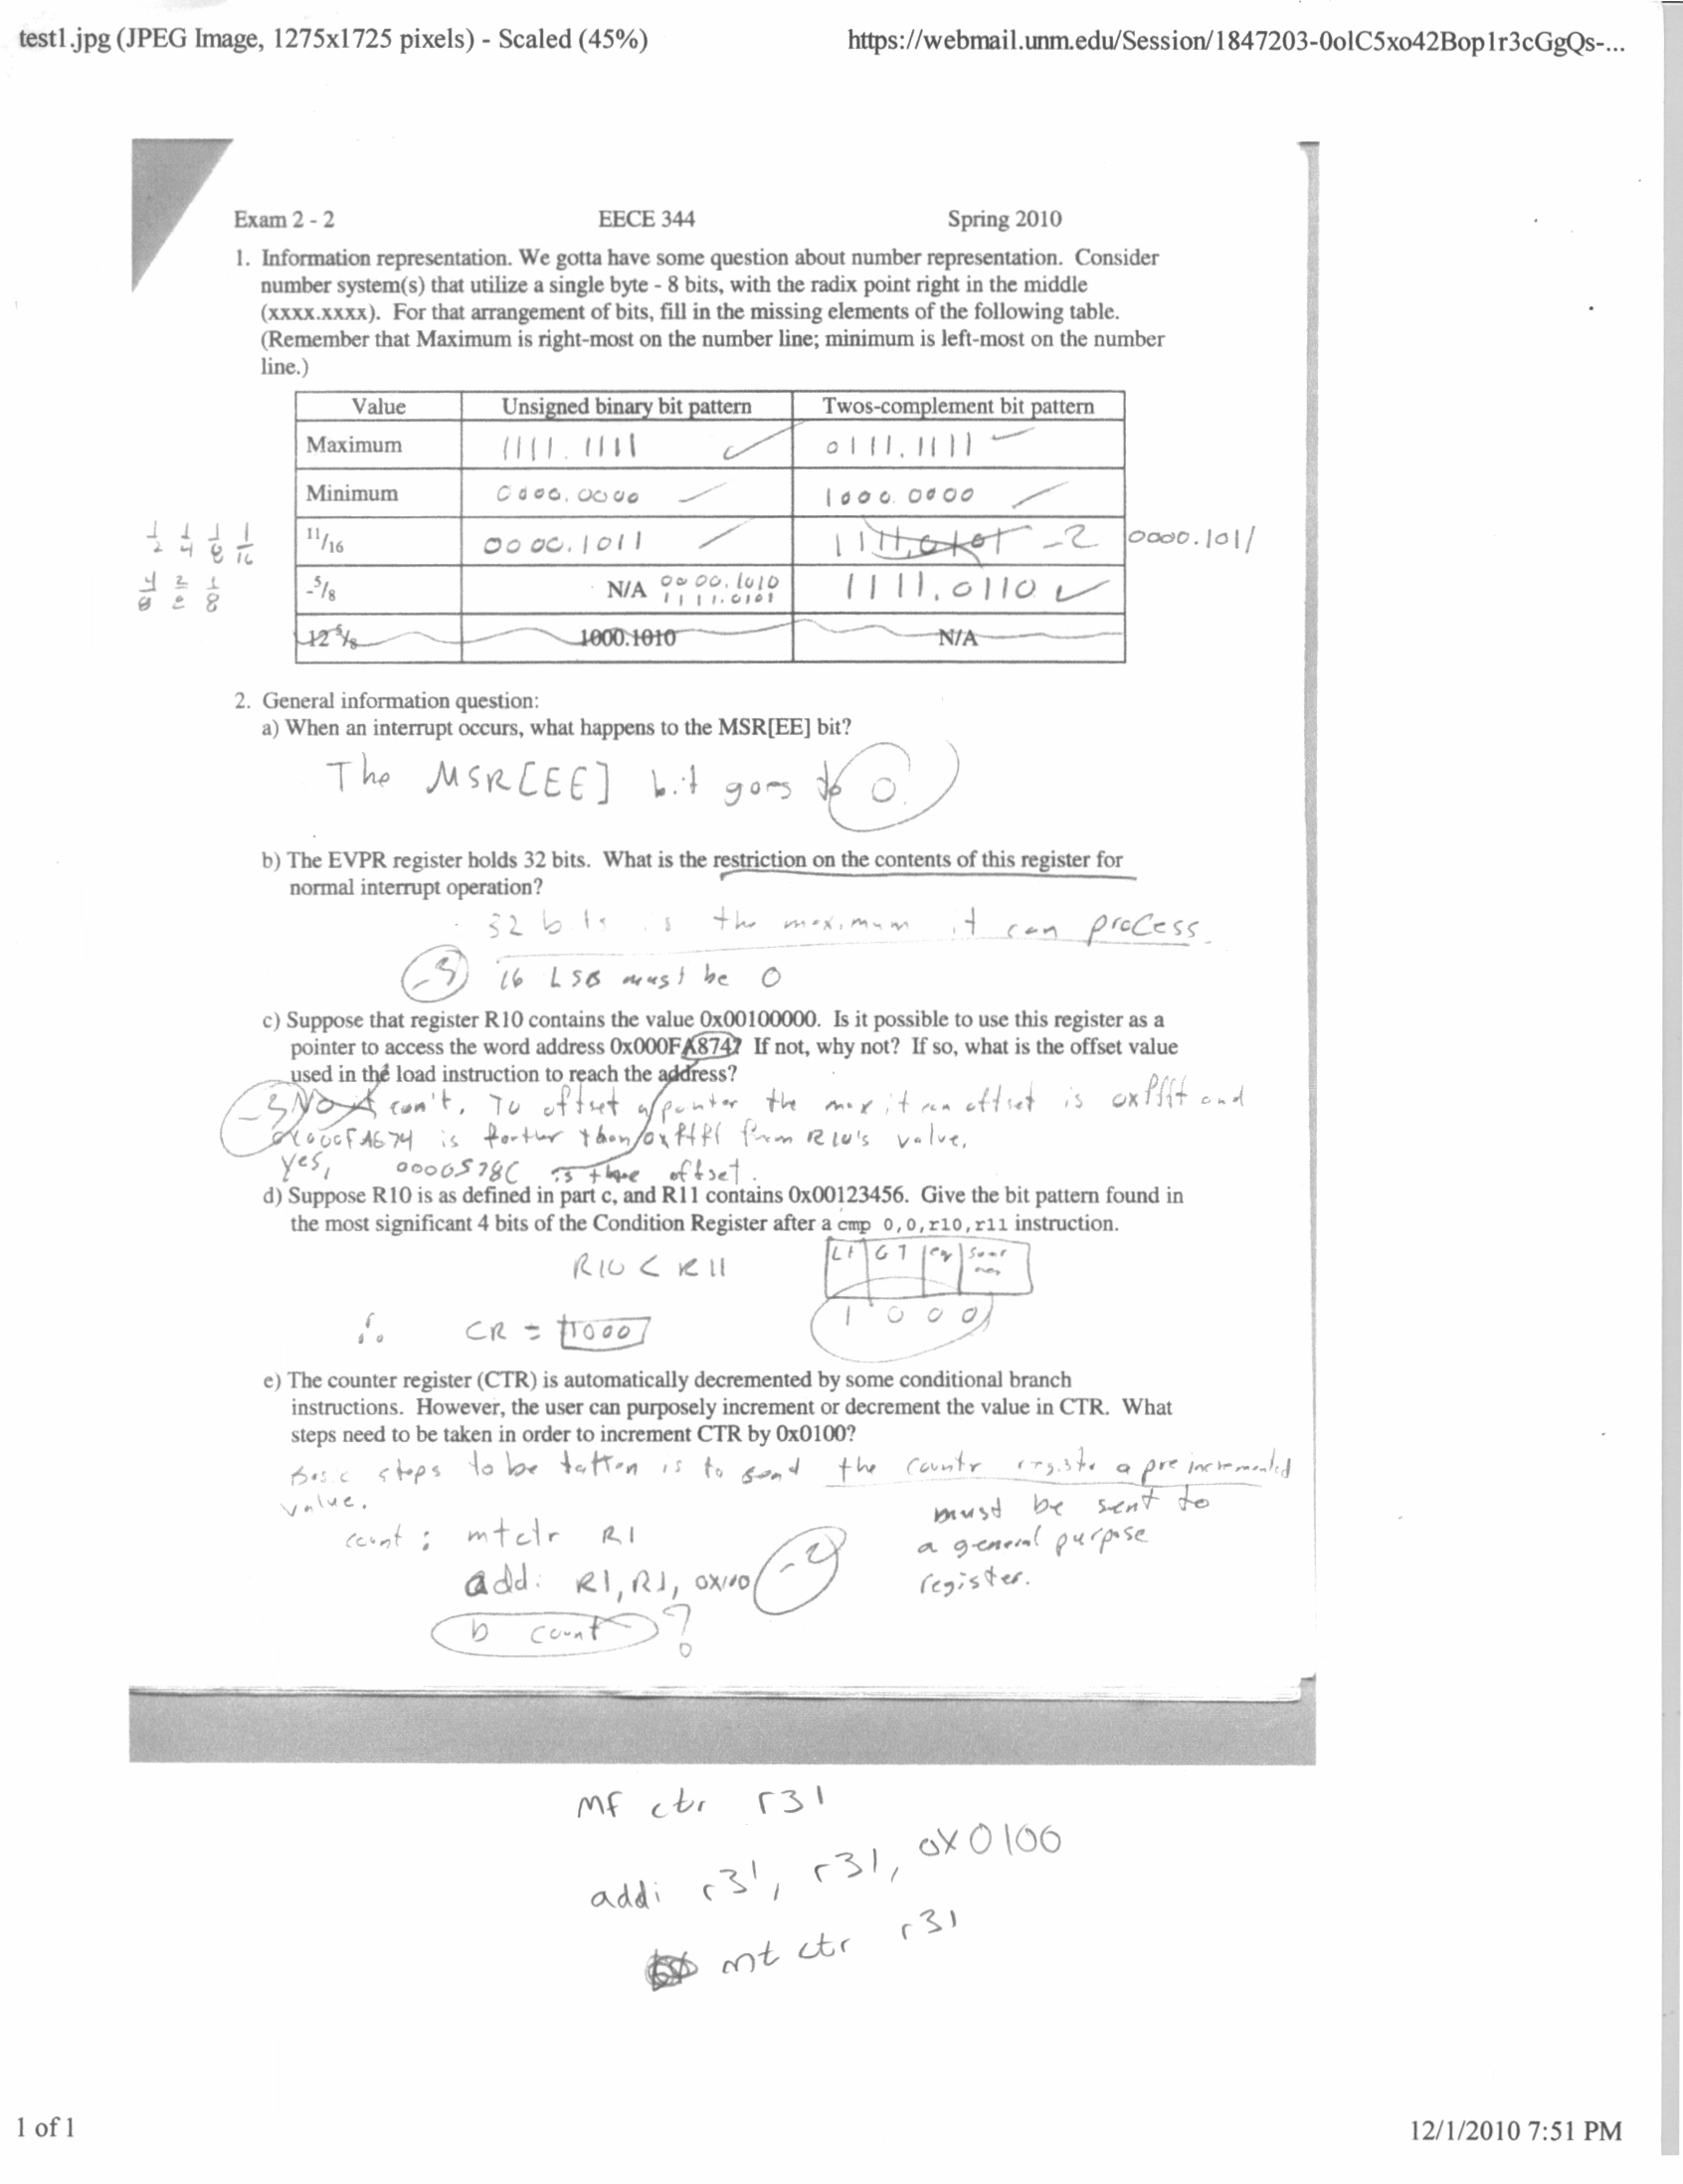 test1.jpg (JPEG Image, 1275x1725 pixels) - Scaled (45%) https://webmail.unm.edu/Session/1847203-0olC5xo42Bop1r3cGgQs-...
Exam 2 - 2 EECE 344 Spring 2010
1. Information representation. We gotta have some question about number representation. Consider
number system(s) that utilize a single byte - 8 bits, with the radix point right in the middle
(xxxx.xxxx). For that arrangement of bits, fill in the missing elements of the following table.
(Remember that Maximum is right-most on the number line; minimum is left-most on the number
line.)
Value Unsigned binary bit pattern Twos-complement bit pattern
Maximum 1111.1111 0111.1111
Minimum 0000.0000 1000.0000
1/2 1/4 1/8 1/16 11/16 0000.1011 -2 0000.1011
4/8 2/8 1/8 -5/8 N/A 0000.1010 1111.0110
1111.0101
12 5/8 1000.1010 N/A
2. General information question:
a) When an interrupt occurs, what happens to the MSR[EE] bit?
The MSR[EE] bit goes to 0.
b) The EVPR register holds 32 bits. What is the restriction on the contents of this register for
normal interrupt operation?
32 bits is the maximum it can process.
16 LSB must be 0
c) Suppose that register R10 contains the value 0x00100000. Is it possible to use this register as a
pointer to access the word address 0x000FA874? If not, why not? If so, what is the offset value
used in the load instruction to reach the address?
-3 No can't. To offset a pointer the max it can offset is 0xffff and
is farther than 0xffff from R10's value.
yes, 0000578C is the offset.
d) Suppose R10 is as defined in part c, and R11 contains 0x00123456. Give the bit pattern found in
the most significant 4 bits of the Condition Register after a cmp 0,0,r10,r11 instruction.
R10 < R11 LT GT eq
1 0 0 0
∴ CR = 1000
e) The counter register (CTR) is automatically decremented by some conditional branch
instructions. However, the user can purposely increment or decrement the value in CTR. What
steps need to be taken in order to increment CTR by 0x0100?
Basic steps to be is to send the counter register a pre incremented
value. must be sent to
count: mtctr R1 a general purpose
addi R1, R1, 0x100 -2 register.
b count ?
mf ctr r31
addi r31, r31, 0x0100
mt ctr r31
1 of 1 12/1/2010 7:51 PM